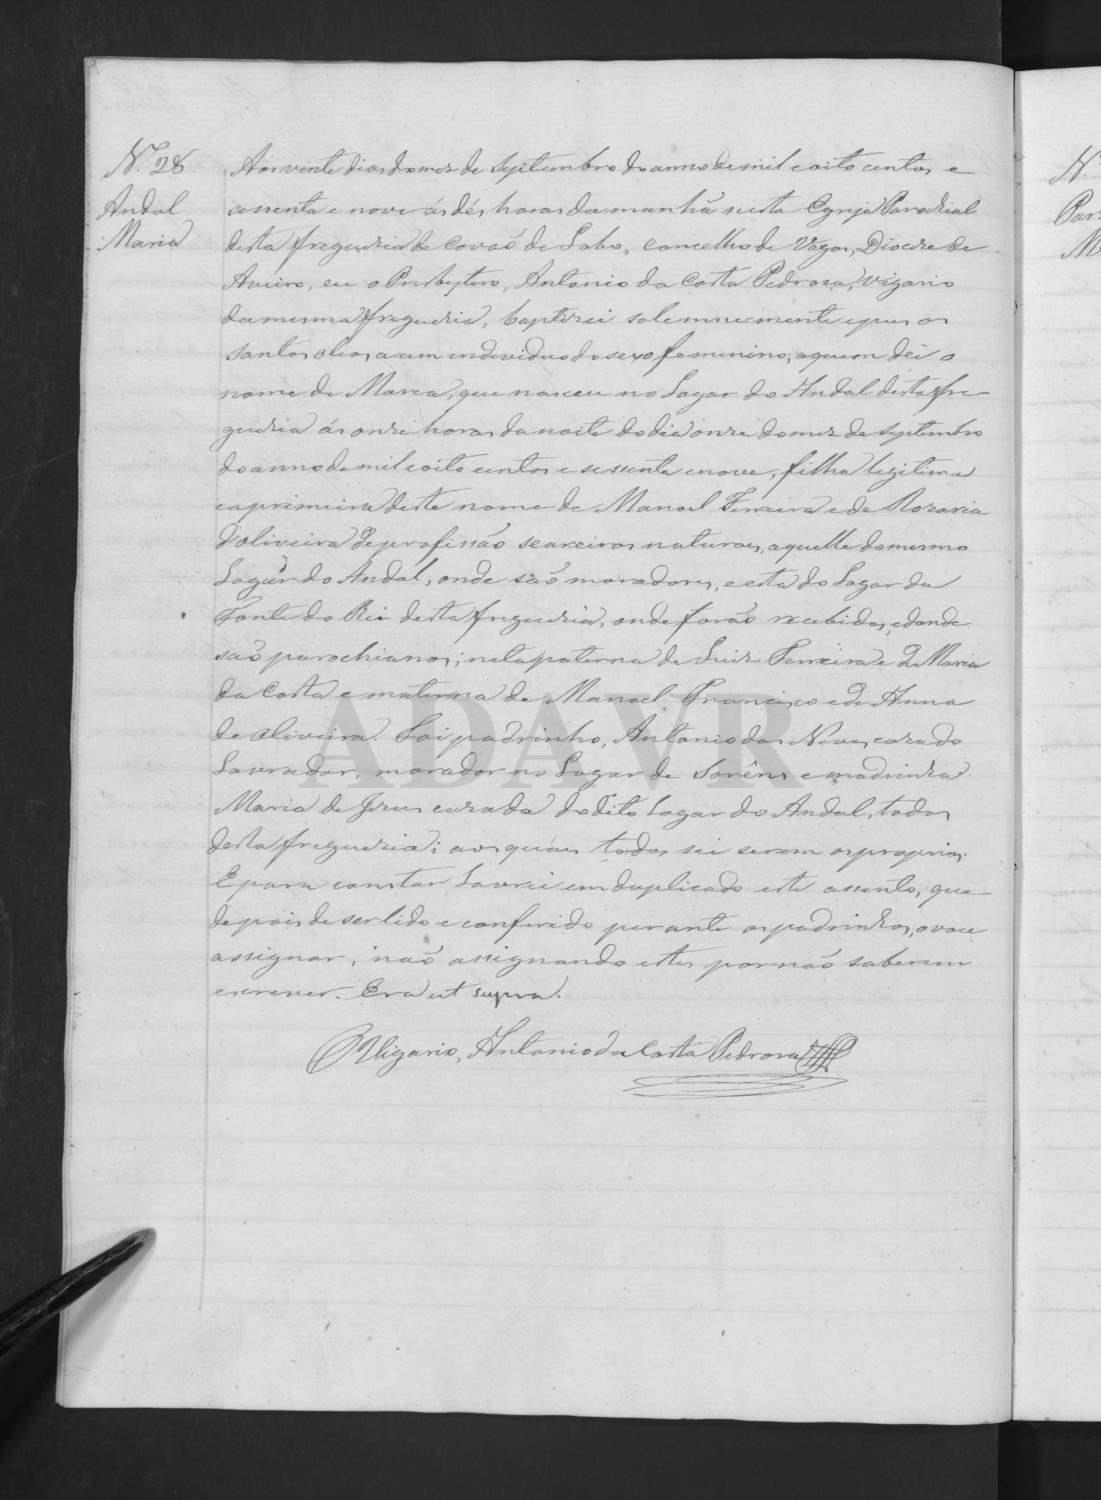 N.º 28
Andal
Maria
Aos vinte dias do mez de Septembro do anno de mil e oito centos e
sessenta e nove ás dés horas da manhã nesta Egreja Parochial
desta freguezia de Covaõ de Lobo, concelho de Vagos, Diocese de
Aveiro, eu o Presbytero, Antonio da Costa Pedrosa, Vigario
da mesma freguezia, baptizei solemnemente e pus os
Santos oleos a um individuo do sexo femenino, a quem dei o
nome de Maria, que nasceu no Lugar do Andal desta fre
guezia ás onze horas da noite do dia onze do mez de Septembro
do anno de mil e oito centos e sessenta e nove, filha legitima
e a primeira deste nome de Manoel Ferreira e de Rozaria
d'oliveira de profissão seareiros naturaes, aquelle do mesmo
Lugar do Andal, onde saõ moradores, e esta do Lugar da
Fonte do Rei desta freguezia, onde foraõ recebidos, e donde
saõ parochianos; neta paterna de Luiz Ferreira e de Maria
da Costa e materna de Manoel Francisco e de Anna
de Oliveira. Foi padrinho, Antonio das Neves, casado
Lavrador, morador no Lugar de Sorêns e madrinha
Maria de Jesus casada do dito Lugar do Andal, todos
desta freguezia; aos quaes todos sei serem os proprios.
E para constar lavrei em duplicado este assento, que
depois de ser lido e conferido perante os padrinhos, o vou
assignar, naõ assignando estes por naõ saberem
escrever. Era ut supra.
O Vigario, Antonio da Costa Pedrosa
ADAVR
N.
Par
M